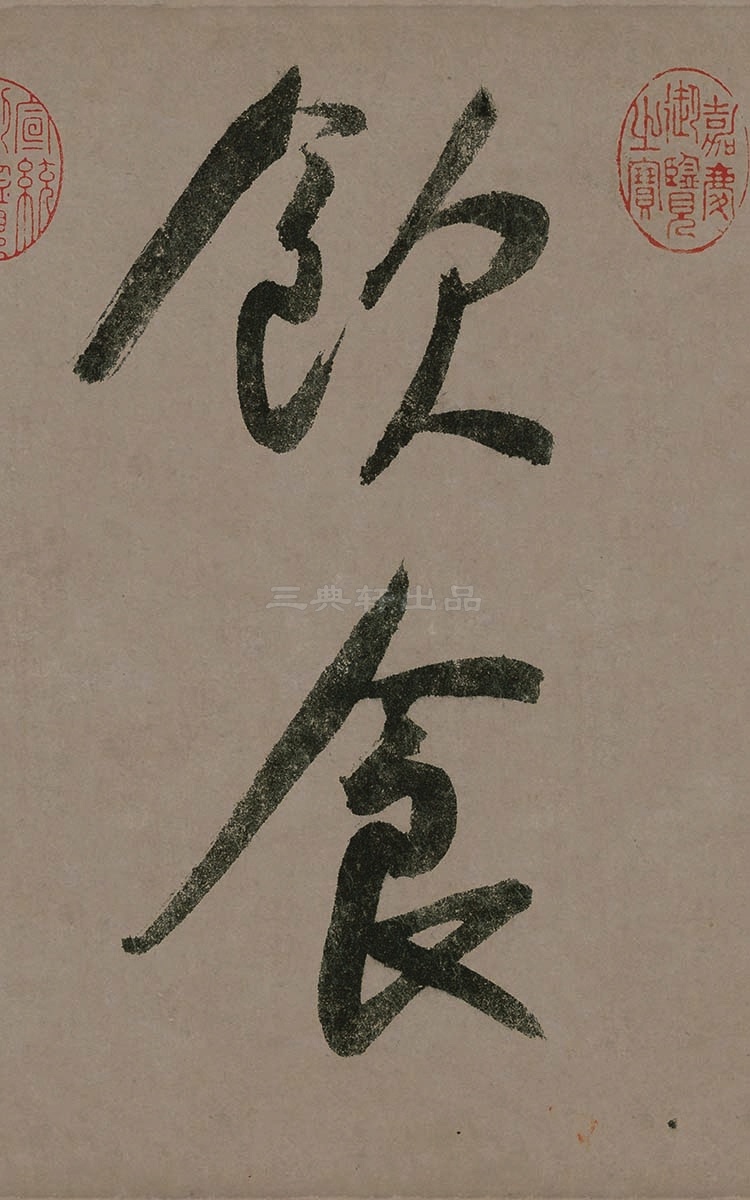 飲
食
嘉慶
御覽
之寶
宣統
三典轩出品